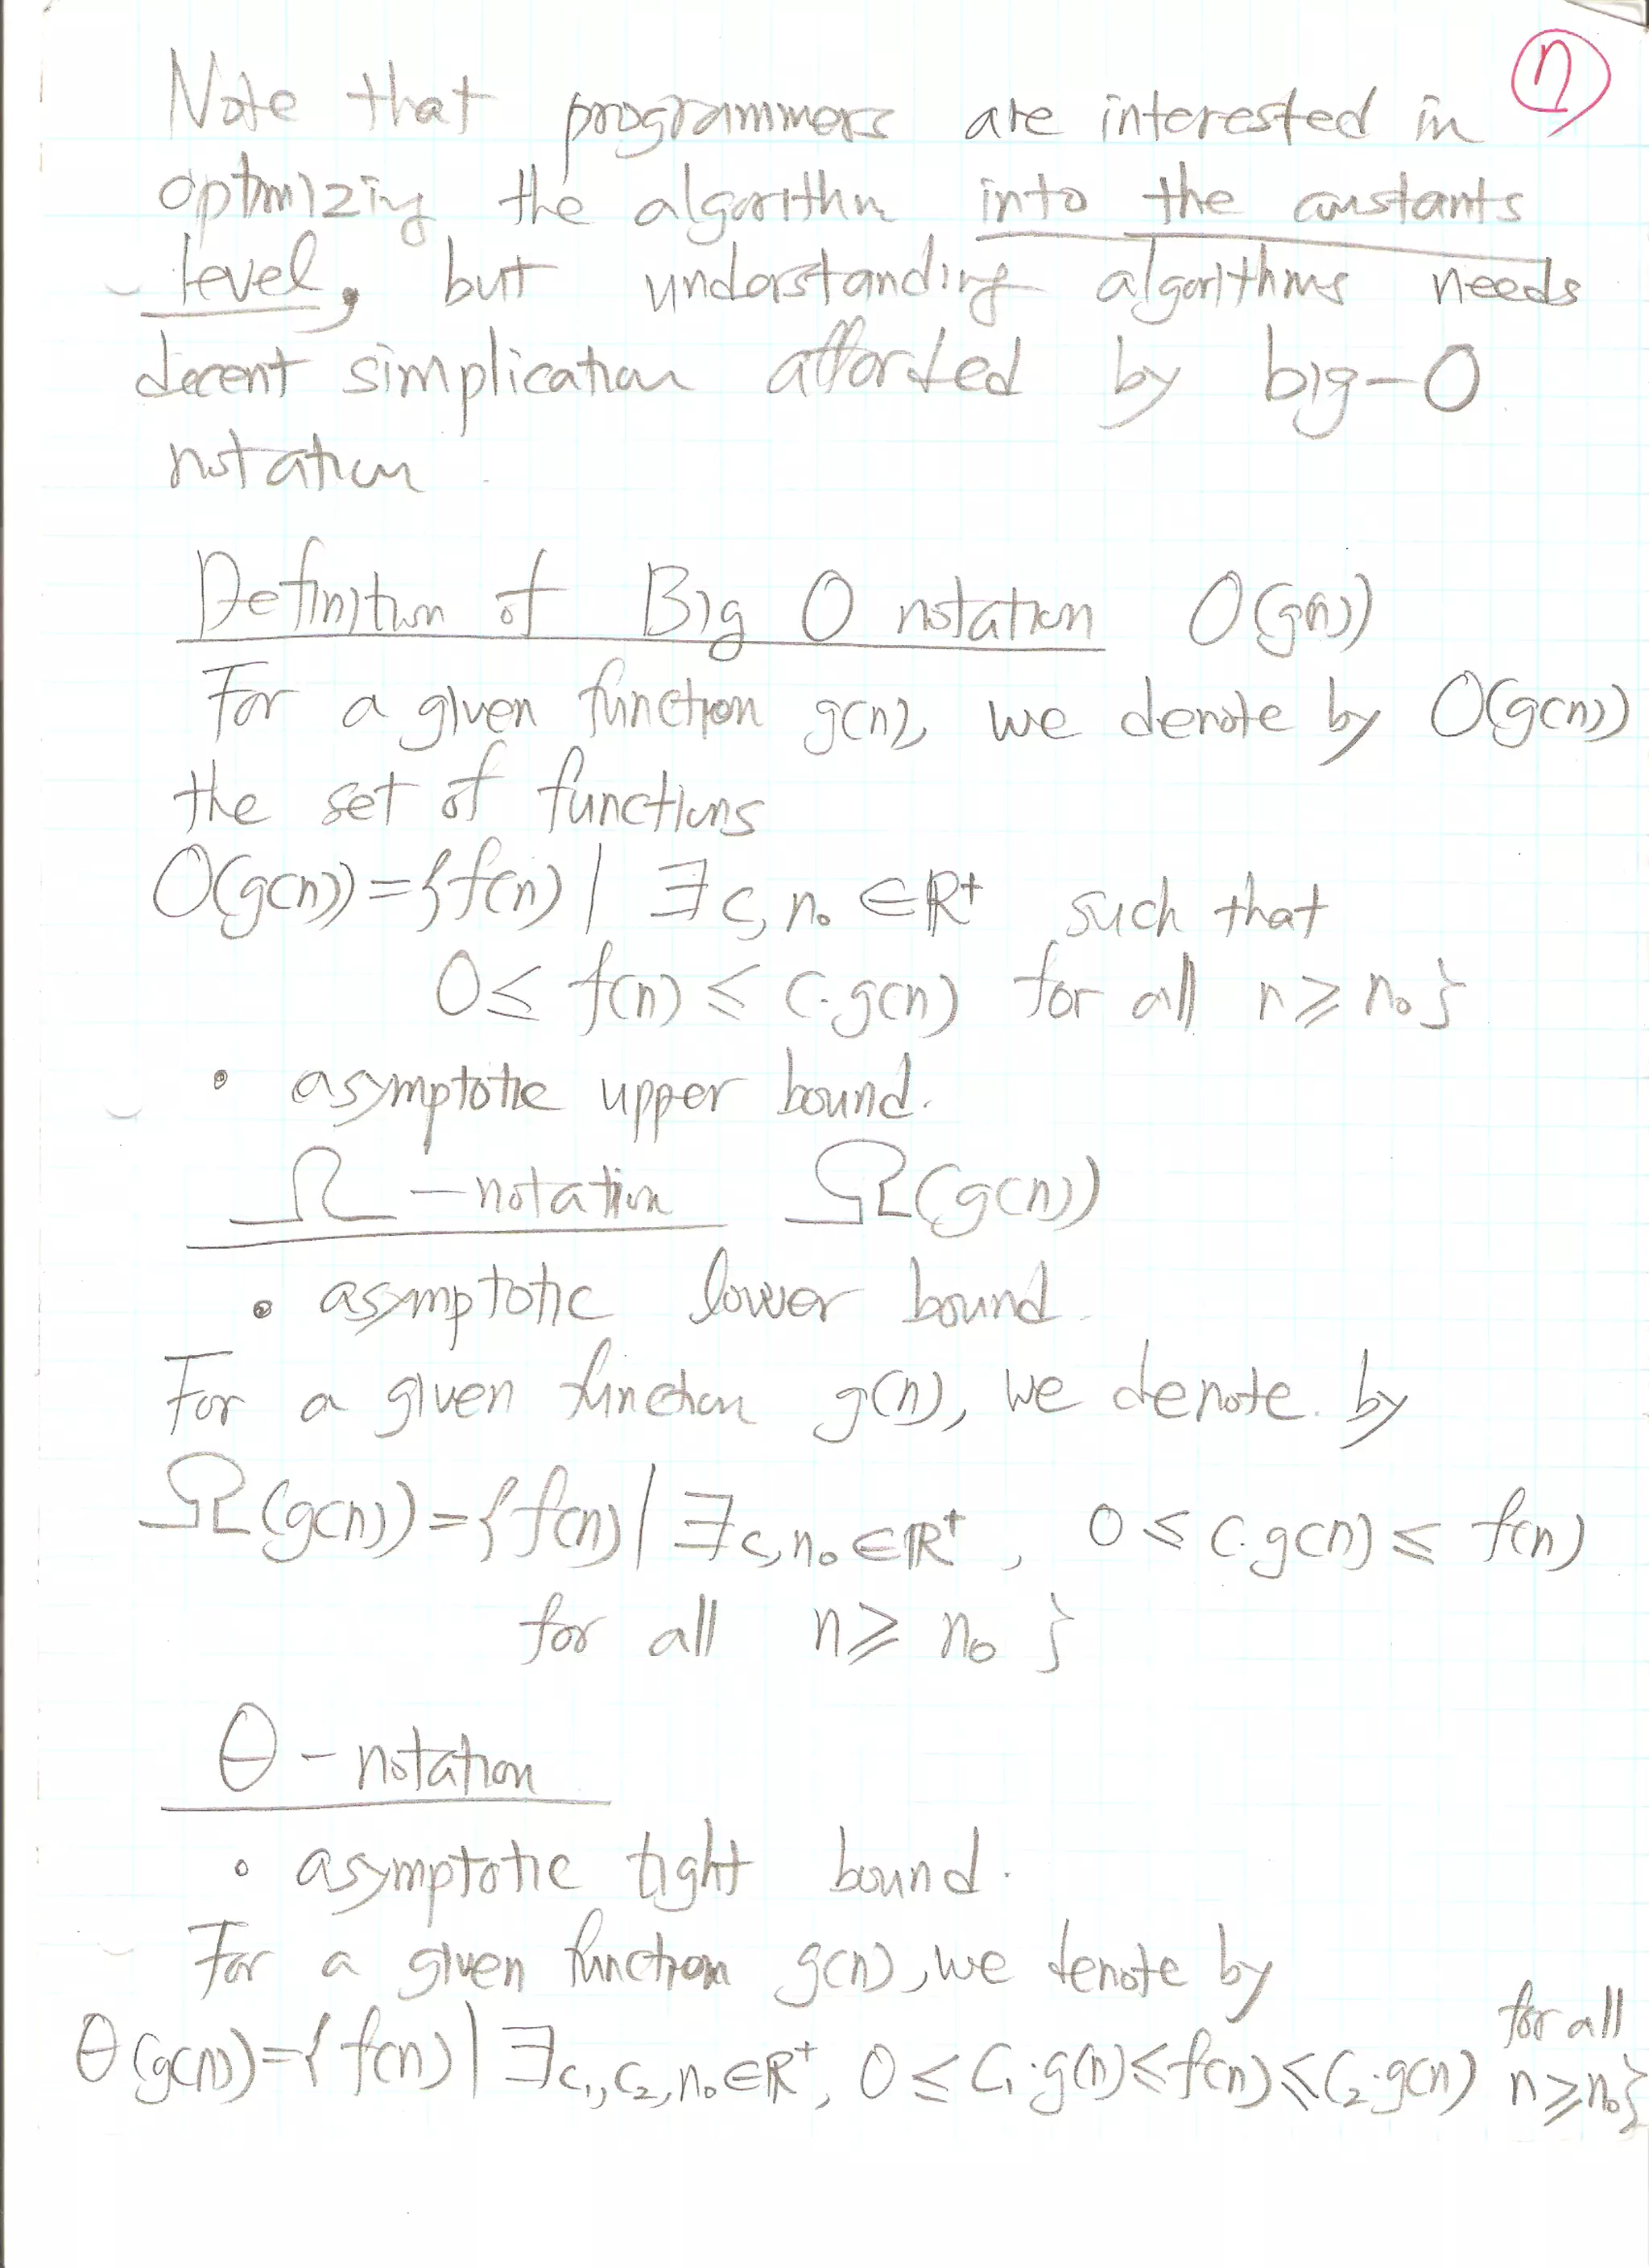 η
Note that programmers are interested in
optimizing the algorithm into the constants
level, but understanding algorithms needs
decent simplication afforded by big-O
notation
Definition of Big O notation O(g(n))
For a given function g(n), we denote by O(g(n))
the set of functions
O(g(n)) = {f(n) | ∃ c, n₀ ∈ ℝ⁺ such that
0 ≤ f(n) ≤ c·g(n) for all n ≥ n₀ }
• asymptotic upper bound.
Ω - notation Ω(g(n))
• asymptotic lower bound.
For a given function g(n), we denote by
Ω(g(n)) = {f(n) | ∃ c, n₀ ∈ ℝ⁺, 0 ≤ c·g(n) ≤ f(n)
for all n ≥ n₀ }
Θ - notation
• asymptotic tight bound.
For a given function g(n), we denote by
Θ(g(n)) = { f(n) | ∃ c₁, c₂, n₀ ∈ ℝ⁺, 0 ≤ c₁·g(n) ≤ f(n) ≤ c₂·g(n) for all
n ≥ n₀}